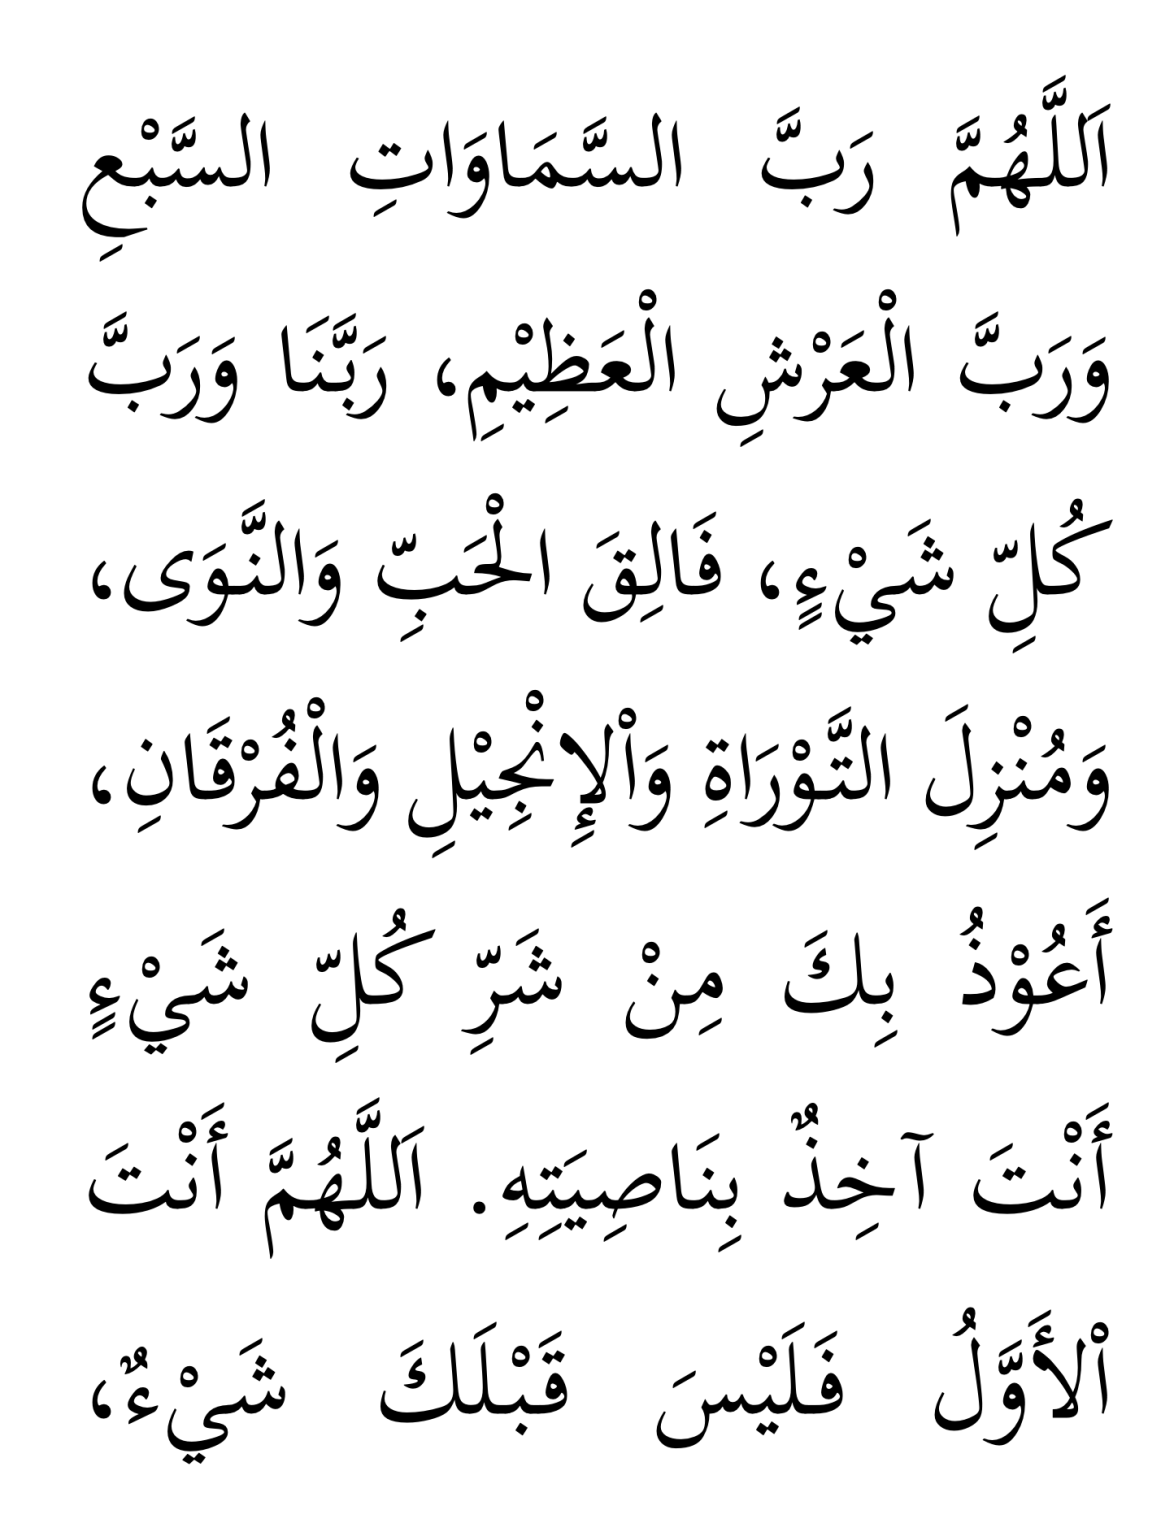 اَللَّهُمَّ رَبَّ السَّمَاوَاتِ السَّبْعِ
وَرَبَّ الْعَرْشِ الْعَظِيْمِ، رَبَّنَا وَرَبَّ
كُلِّ شَيْءٍ، فَالِقَ الْحَبِّ وَالنَّوَى،
وَمُنْزِلَ التَّوْرَاةِ وَاْلإِنْجِيْلِ وَالْفُرْقَانِ،
أَعُوْذُ بِكَ مِنْ شَرِّ كُلِّ شَيْءٍ
أَنْتَ آخِذٌ بِنَاصِيَتِهِ. اَللَّهُمَّ أَنْتَ
اْلأَوَّلُ فَلَيْسَ قَبْلَكَ شَيْءٌ،